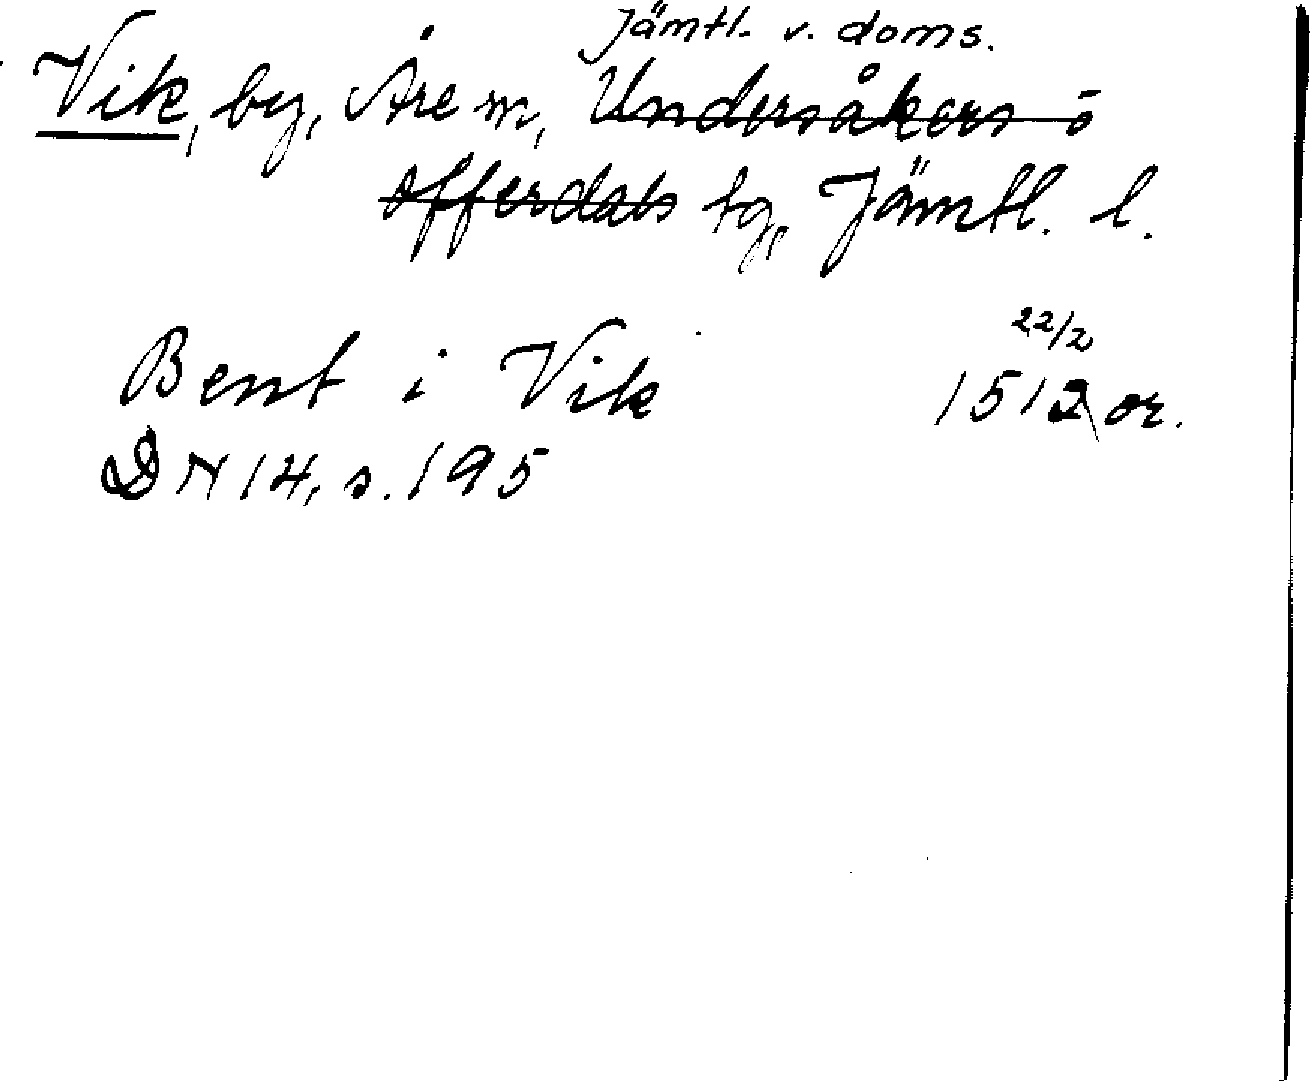 Jämtl. v. doms.
Vik, by, Åre sn, Undersåkers o
Offerdals tg, Jämtl. l.
22/2
Bent i Vik 1512 or.
DN 14, s. 195